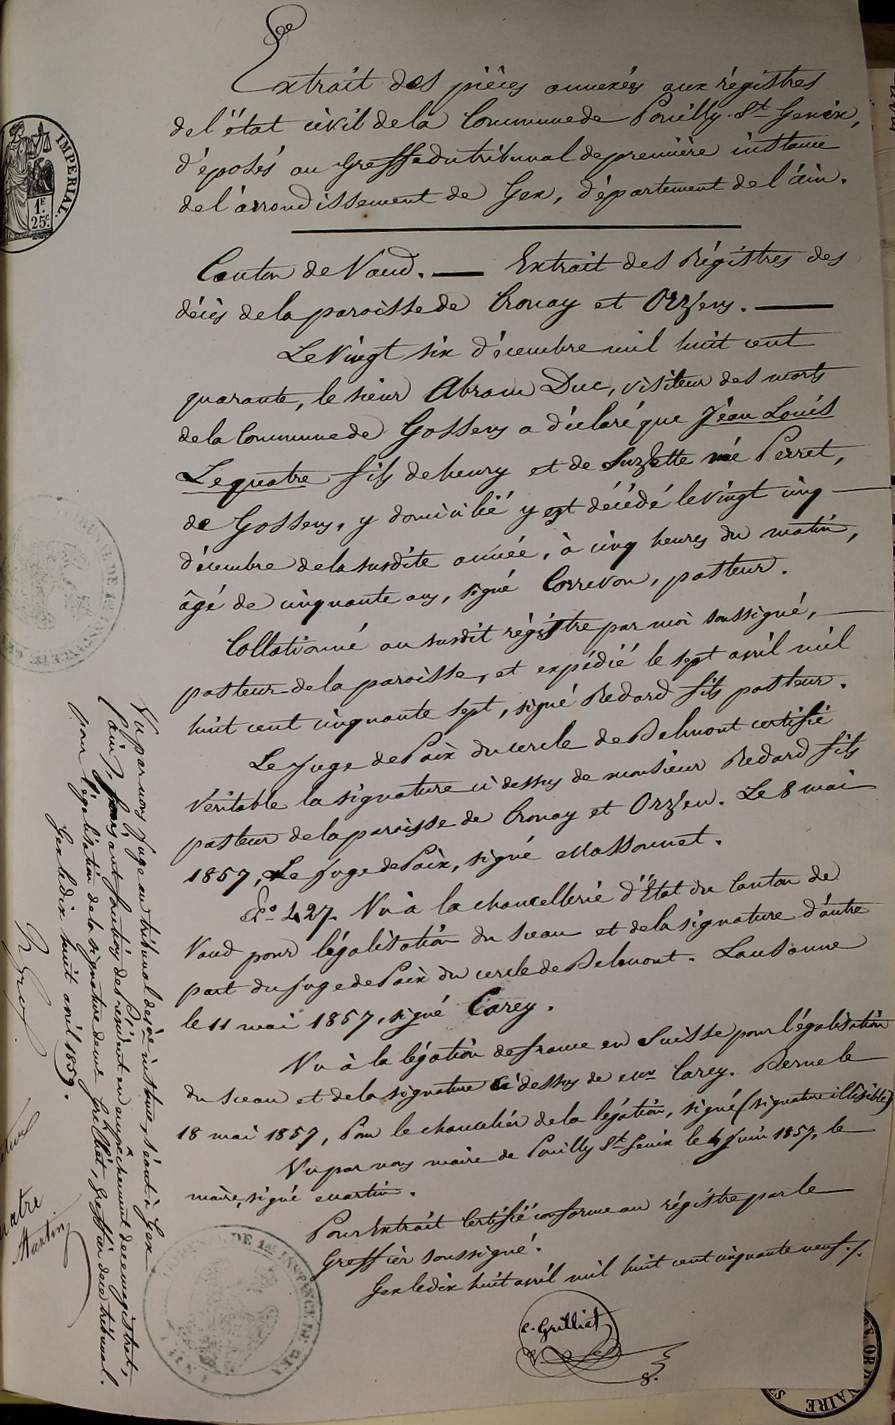 Extrait des pièces annexées aux régistres
de l'état civil de la Commune de Pouilly-St-Genix,
d'éposés au Greffe du tribunal de première instance
de l'árrondissement de Gex, d'épartement de l'áin.
Canton de Vaud. — Extrait des Régistres des
décès de la paroisse de Cronay et Orzens. —
Le Vingt six décembre mil huit cent
quarante, le sieur Abram Duc, visiteur des morts
de la Commune de Gossens a déclaré que Jéan Louis
Lequatre fils de henry et de Suzette né Perret,
de Gossens, y domicilié y est décédé le vingt cinq —
décembre de la susdite année, à cinq heures du matin,
âgé de cinquante ans, signé Correvon, pasteur.
Collationné au susdit régistre par moi soussigné, —
pasteur de la paroisse, et expédié le sept avril mil
huit cent cinquante sept, signé Bedard fils pasteur.
Le Juge de Paix du cercle de Belmont certifie
Véritable la signature ci dessus de monsieur Bedard fils
pasteur de la paroisse de Cronay et Orzen. Le 8 mai
1857, Le Juge de Paix, signé Massonnet.
427 Vu à la chancellerie d'État du Canton de
Vaud pour légalisation du sceau et de la signature d'autre
part du Juge de Paix du cercle de Belmont. Lausanne
le 11 mai 1857, signé Carey.
Vu à la légation de france en Suisse pour légalisation
du sceau et de la signature ci dessus de Mr Carey. Berne le
18 mai 1857, Pour le chancelier de la légation, signé (signature illisible)
Vu par nous maire de Pouilly St Genix le 4 Juin 1857, le
maire, signé Martin.
Pour Extrait Certifié conforme au régistre par le
Greffier soussigné.
Gex le dix huit avril mil huit cent cinquante neuf ./.
C. Grilliet
Vu par nous Juge au tribunal de 1ère instance, séant à Gex
(ain), faisant fonctions de Président en empêchement de ce magistrat,
pour légalisation de la signature de Me Grilliet, Greffier de ce tribunal.
Gex le dix huit avril 1859.
Martin
IMPERIAL.
1F
25C
TRIBUNAL DE 1ERE INSTANCE DE GEX
TRIBUNAL DE 1ERE INSTANCE DE GEX